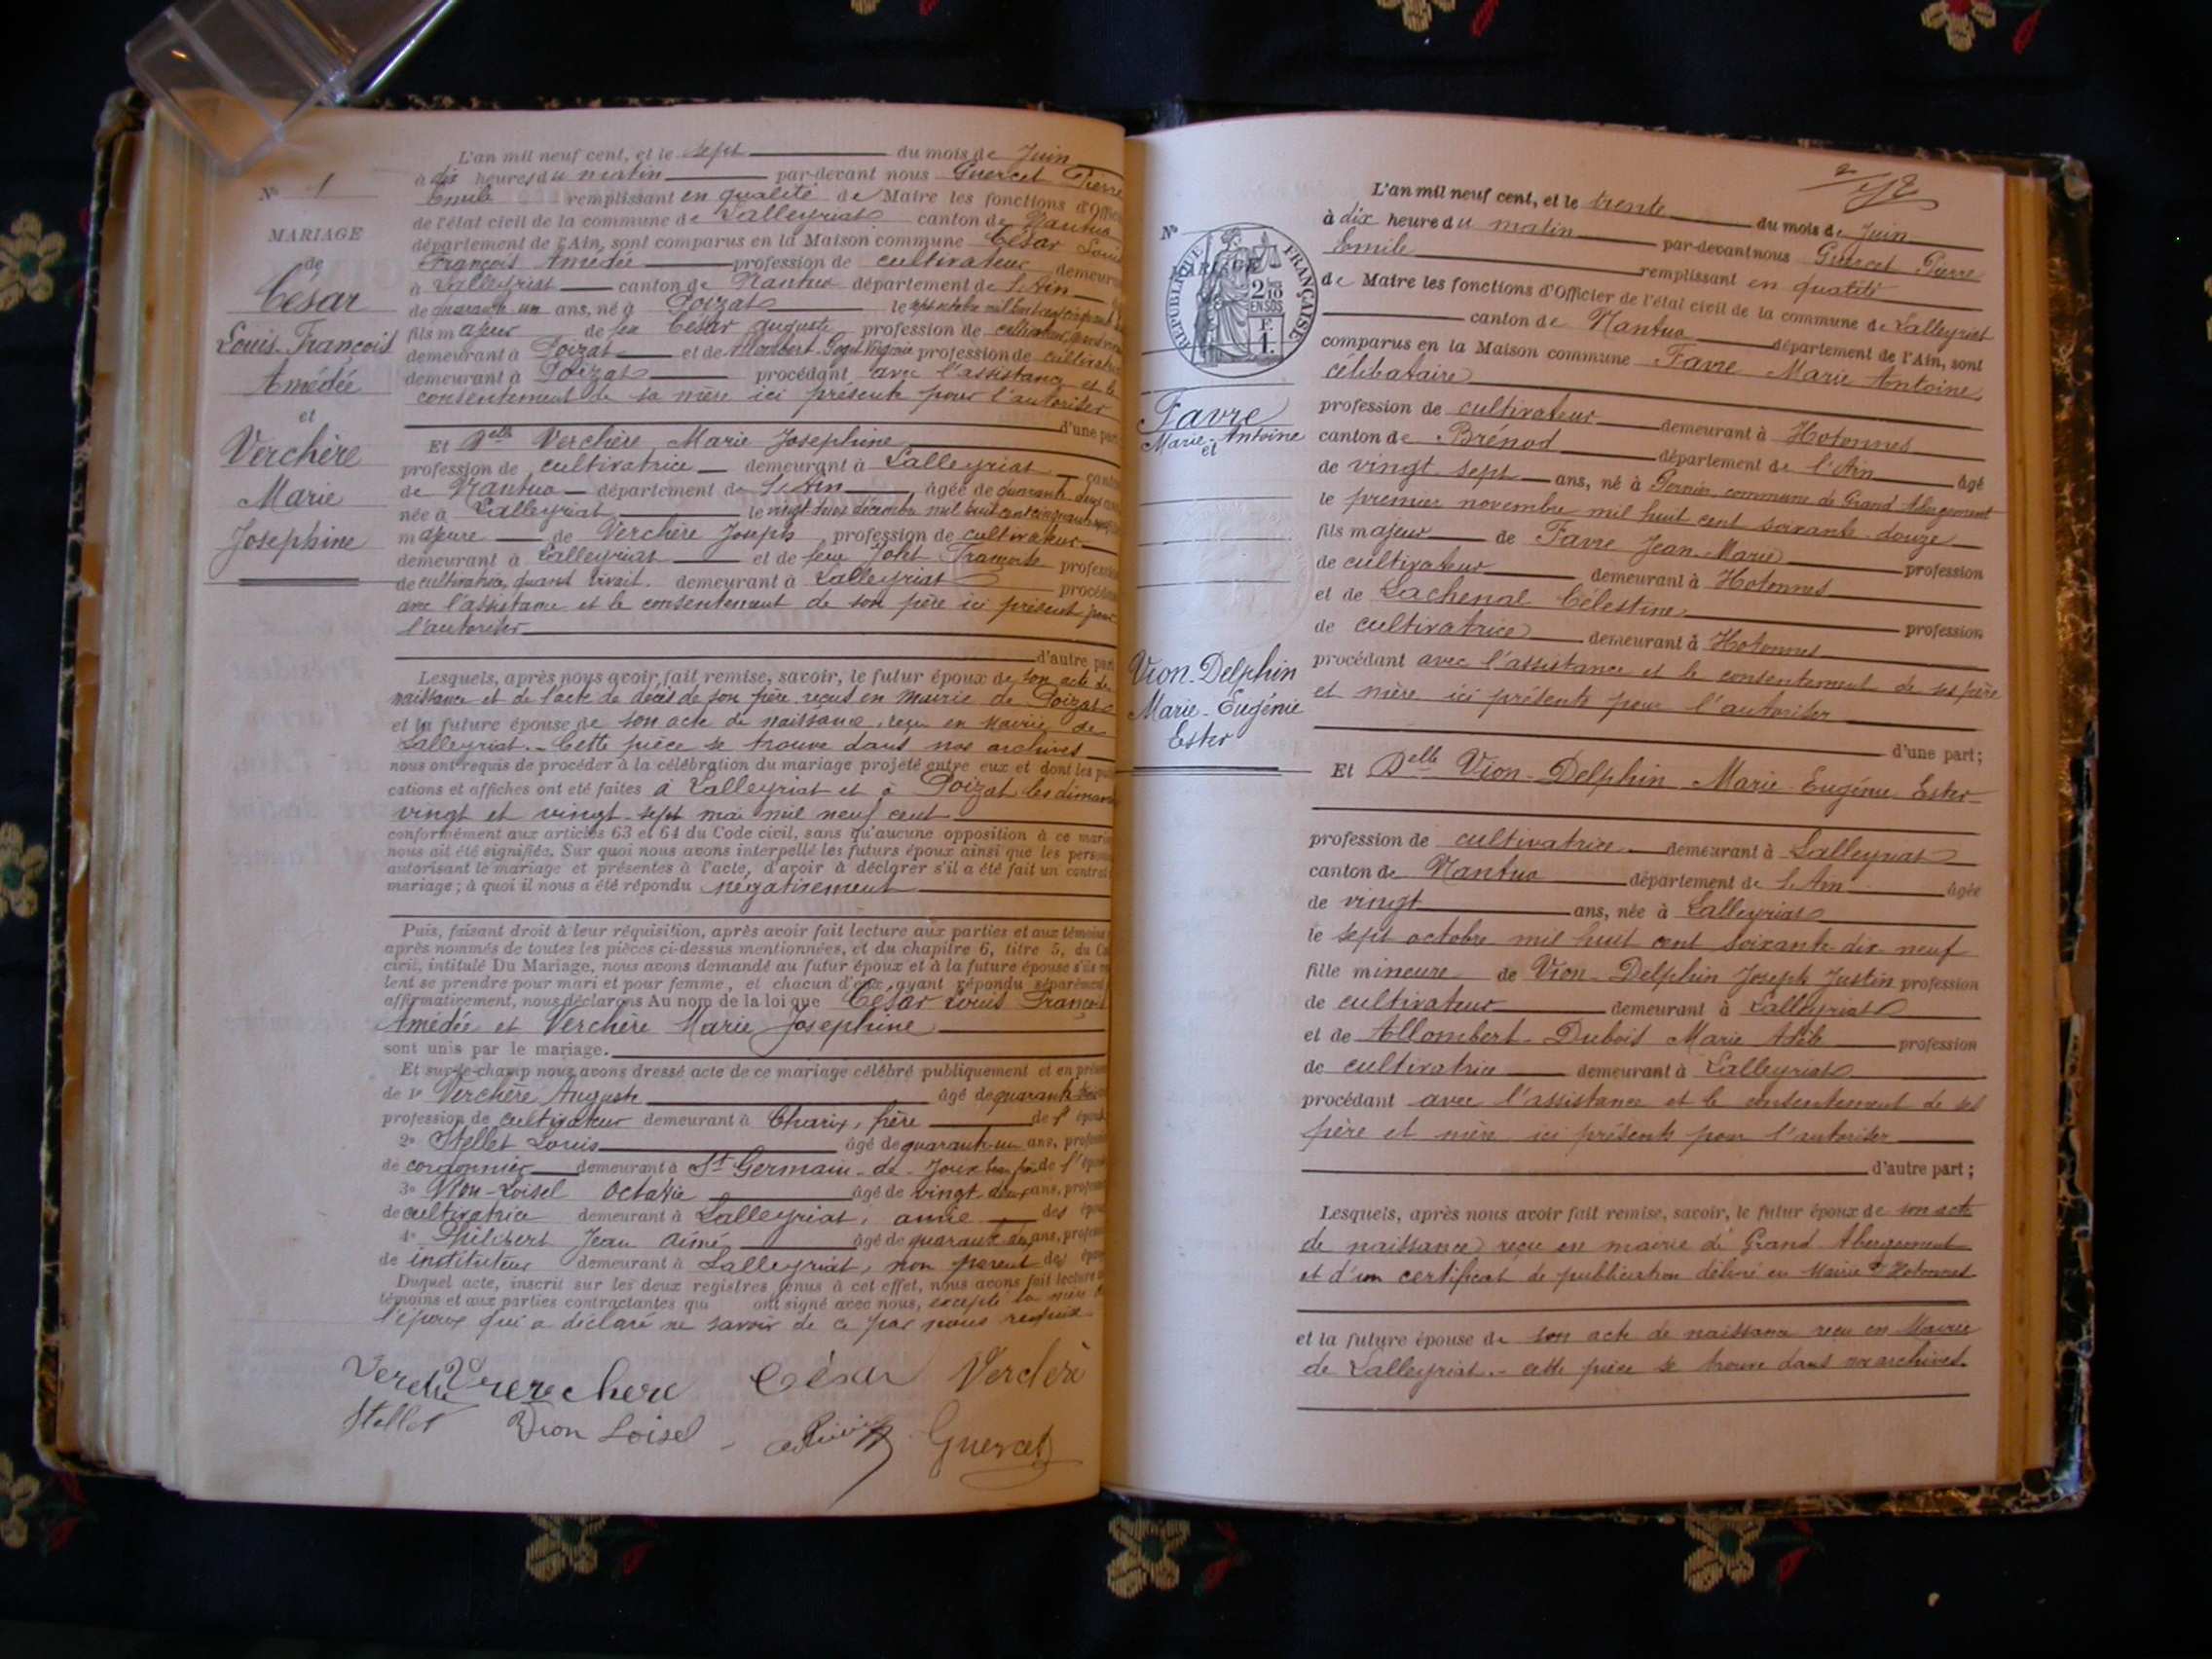 N° 1
MARIAGE
de
César
Louis-François
Amédée
et
Verchère
Marie
Josephine
L'an mil neuf cent, et le sept du mois de Juin
à dix heures du matin par-devant nous Guercet Pierre
Emile remplissant en qualité de Maire les fonctions d'Offic
de l'état civil de la commune de Lalleyriat canton de Nantua
département de l'Ain, sont comparus en la Maison commune César Louis
François Amédée profession de cultivateur demeura
à Lalleyriat canton de Nantua département de l'Ain
de quarante un ans, né à Poizat le sept octobre mil huit cent cinquante
fils majeur de feu César Auguste profession de cultivateur, quand
demeurant à Poizat et de Allombert Goget Virginie profession de cultivatrice
demeurant à Poizat procédant avec l'assistance et le
consentement de sa mère ici présente pour l'autoriser
d'une part
Et Delle Verchère Marie Josephine
profession de cultivatrice demeurant à Lalleyriat canton
de Nantua département de l'Ain âgée de quarante deux ans
née à Lalleyriat le vingt deux décembre mil huit cent cinquante sept
majeure de Verchère Joseph profession de cultivateur
demeurant à Lalleyriat et de feue Françoise profession
de cultivatrice, quand vivait. demeurant à Lalleyriat procédant
avec l'assistance et le consentement de son père ici présent pour
l'autoriser
d'autre part
Lesquels, après nous avoir fait remise, savoir, le futur époux de son acte de
naissance et de l'acte de décès de son père reçus en mairie de Poizat
et la future épouse de son acte de naissance, reçu en mairie de
Lalleyriat. - Cette pièce se trouve dans nos archives
nous ont requis de procéder à la célébration du mariage projeté entre eux et dont les pu
cations et affiches ont été faites à Lalleyriat et à Poizat les diman
vingt et vingt-sept mai mil neuf cent
conformément aux articles 63 et 64 du Code civil, sans qu'aucune opposition à ce mari
nous ait été signifiée. Sur quoi nous avons interpellé les futurs époux ainsi que les person
autorisant le mariage et présentes à l'acte, d'avoir à déclarer s'il a été fait un contrat
mariage ; à quoi il nous a été répondu négativement
Puis, faisant droit à leur réquisition, après avoir fait lecture aux parties et aux témoins
après nommés de toutes les pièces ci-dessus mentionnées, et du chapitre 6, titre 5, du Co
civil, intitulé Du Mariage, nous avons demandé au futur époux et à la future épouse s'ils
lent se prendre pour mari et pour femme, et chacun d'eux ayant répondu séparément
affirmativement, nous déclarons Au nom de la loi que César Louis François
Amédée et Verchère Marie Josephine
sont unis par le mariage.
Et sur-le-champ nous avons dressé acte de ce mariage célébré publiquement et en prése
de 1° Verchère Auguste âgé de quarante
profession de cultivateur demeurant à Charix, frère de l'épouse
2° Stellet Louis âgé de quarante un ans, profession
de cordonnier demeurant à St Germain-de-Joux de l'épouse
3° Vion-Loisel Octavie âgé de vingt deux ans, profession
de cultivatrice demeurant à Lalleyriat, amie des époux
4° Philibert Jean Aimé âgé de quarante ans, profession
de instituteur demeurant à Lalleyriat, non parent des époux
Duquel acte, inscrit sur les deux registres tenus à cet effet, nous avons fait lecture
témoins et aux parties contractantes qui ont signé avec nous, excepté la mère
l'époux qui a déclaré ne savoir de ce par nous requise
Verchère Verechere César Verchère
Stellet Vion Loisel Guercet
N°
MARIAGE
RÉPUBLIQUE FRANÇAISE
2/10
EN SUS
F.
1.
Favre
Marie-Antoine
et
Vion-Delphin
Marie-Eugénie
Ester
L'an mil neuf cent, et le trente du mois de Juin
à dix heure du matin par-devant nous Guercet Pierre
Emile remplissant en qualité
de Maire les fonctions d'Officier de l'état civil de la commune de Lalleyriat
canton de Nantua département de l'Ain, sont
comparus en la Maison commune Favre Marie Antoine,
célibataire
profession de cultivateur demeurant à Hotonnes
canton de Brénod département de l'Ain âgé
de vingt-sept ans, né à commune de Grand Abergement
le premier novembre mil huit cent soixante-douze
fils majeur de Favre Jean-Marie profession
de cultivateur demeurant à Hotonnes
et de Lachenal Célestine profession
de cultivatrice demeurant à Hotonnes
procédant avec l'assistance et le consentement de ses père
et mère ici présents pour l'autoriser
d'une part ;
Et Delle Vion-Delphin Marie-Eugénie Ester
profession de cultivatrice demeurant à Lalleyriat
canton de Nantua département de l'Ain âgée
de vingt ans, née à Lalleyriat
le sept octobre mil huit cent soixante dix-neuf
fille mineure de Vion-Delphin Joseph Justin profession
de cultivateur demeurant à Lalleyriat
et de Allombert-Dubois Marie Adèle profession
de cultivatrice demeurant à Lalleyriat
procédant avec l'assistance et le consentement de ses
père et mère ici présents pour l'autoriser
d'autre part ;
Lesquels, après nous avoir fait remise, savoir, le futur époux de son acte
de naissance reçu en mairie de Grand Abergement
et d'un certificat de publication délivré en Mairie d'Hotonnes
et la future épouse de son acte de naissance reçu en Mairie
de Lalleyriat. - cette pièce se trouve dans nos archives.